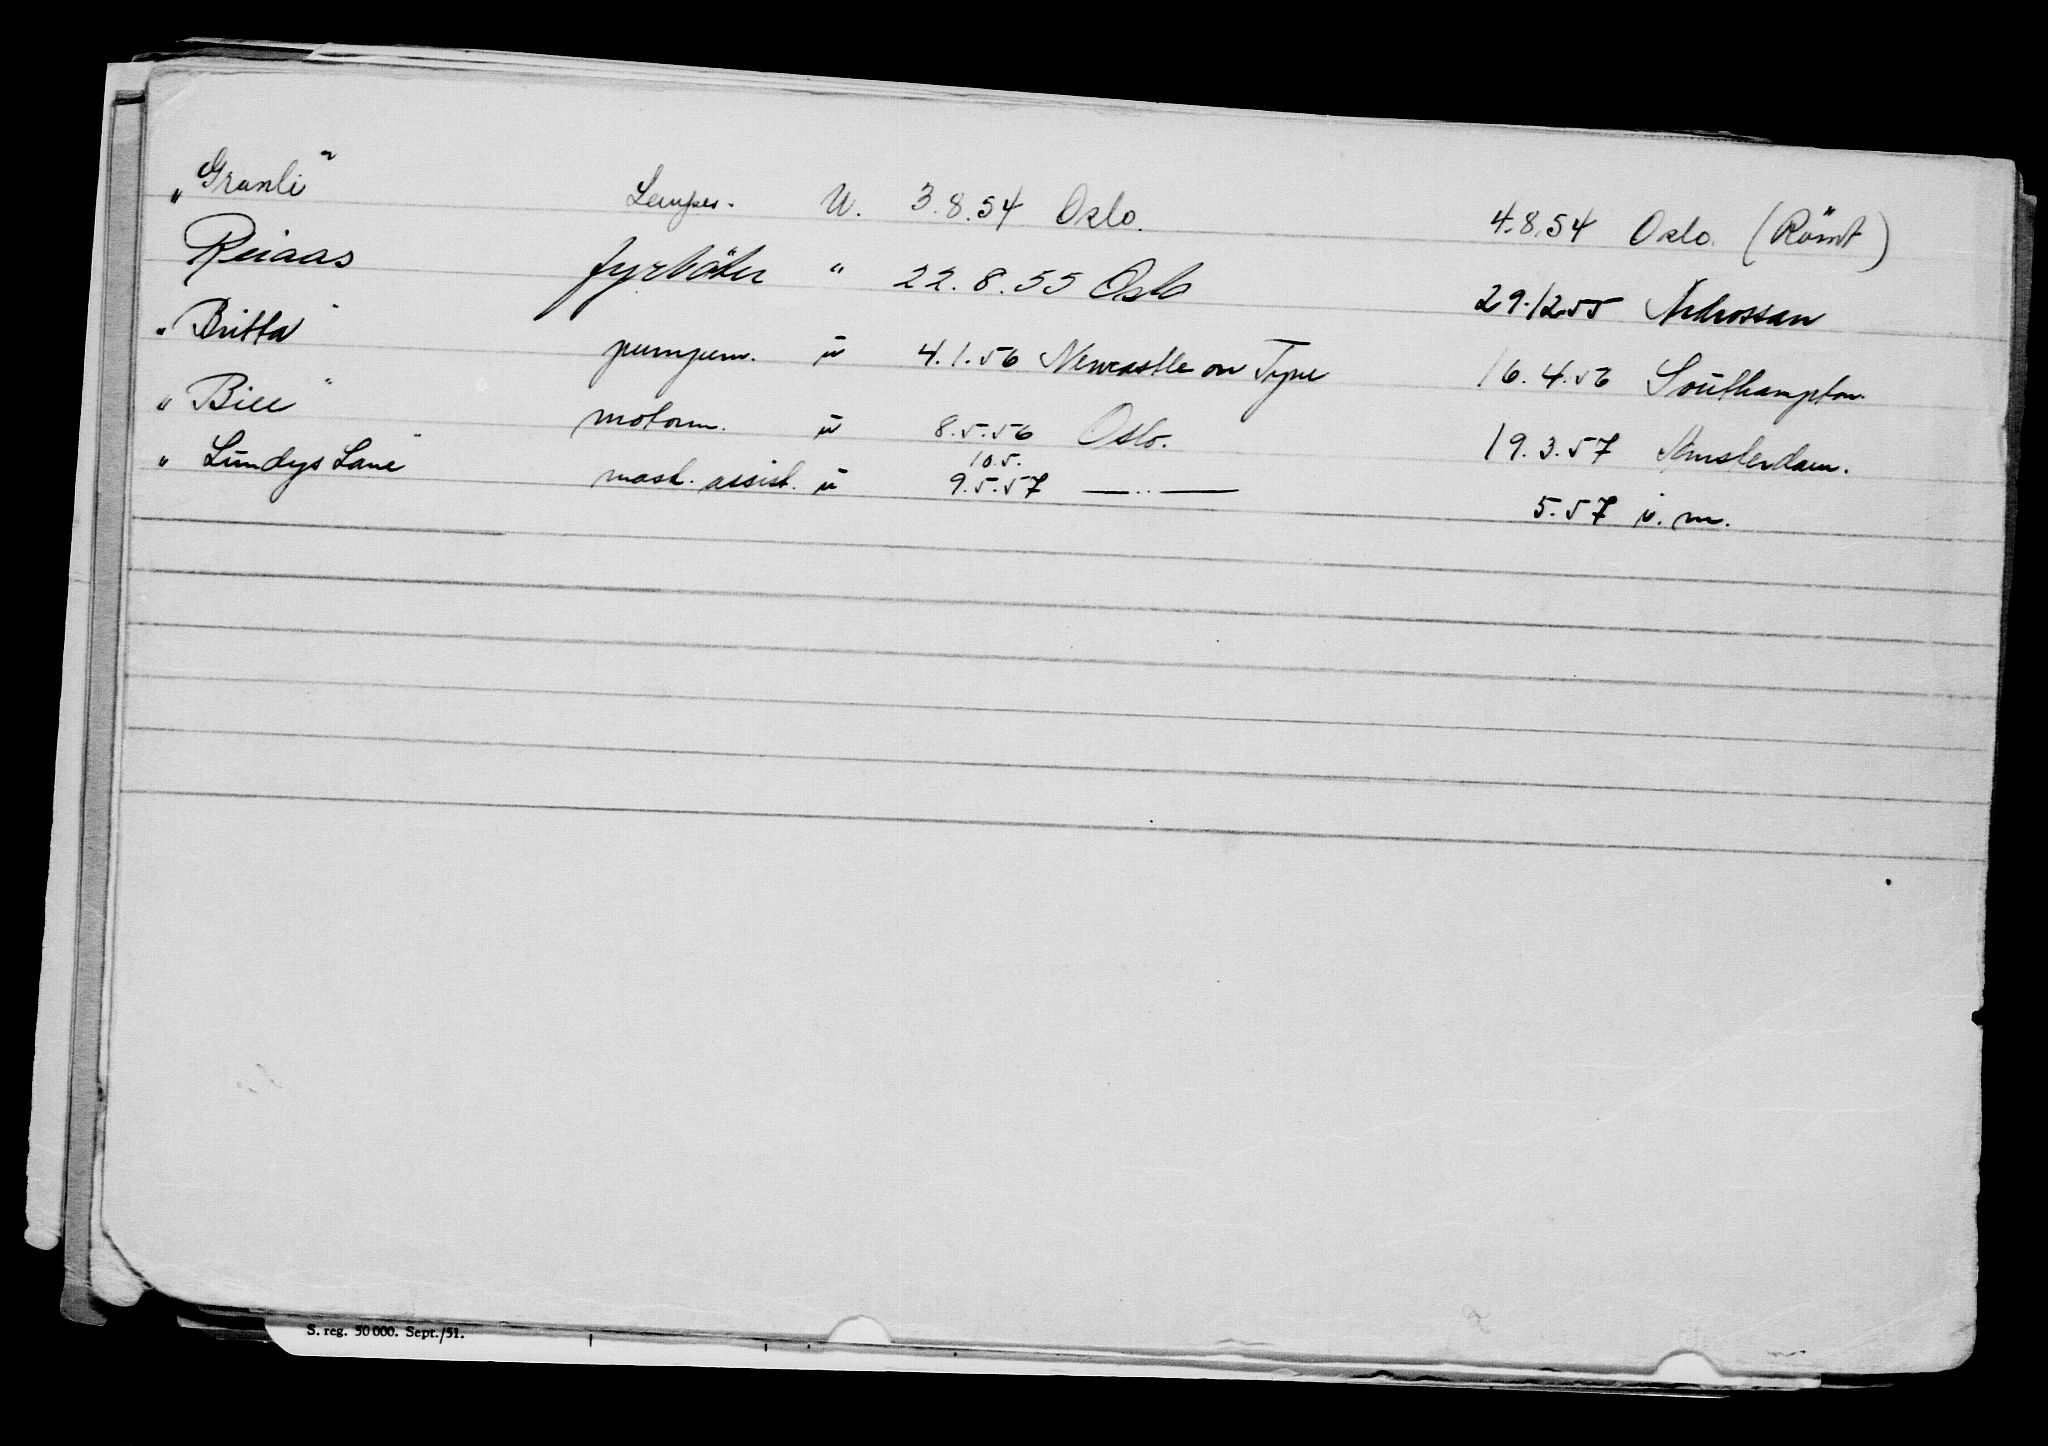 „Granli" Lemper. U. 3.8.54 Oslo. 4.8.54 Oslo. (Römt)
Reiaas fyrböter " 22.8.55 Oslo 29.12.55 Ardrossan
„Britta" pumpem. u 4.1.56 Newcastle on Tyne 16.4.56 Southampton.
„Bill" motorm. u 8.5.56 Oslo. 19.3.57 Amsterdam.
10.5.
„Lundys Lane" mask. assist. u 9.5.57 —..— 5.57 i. m.
S. reg. 50 000. Sept./51.